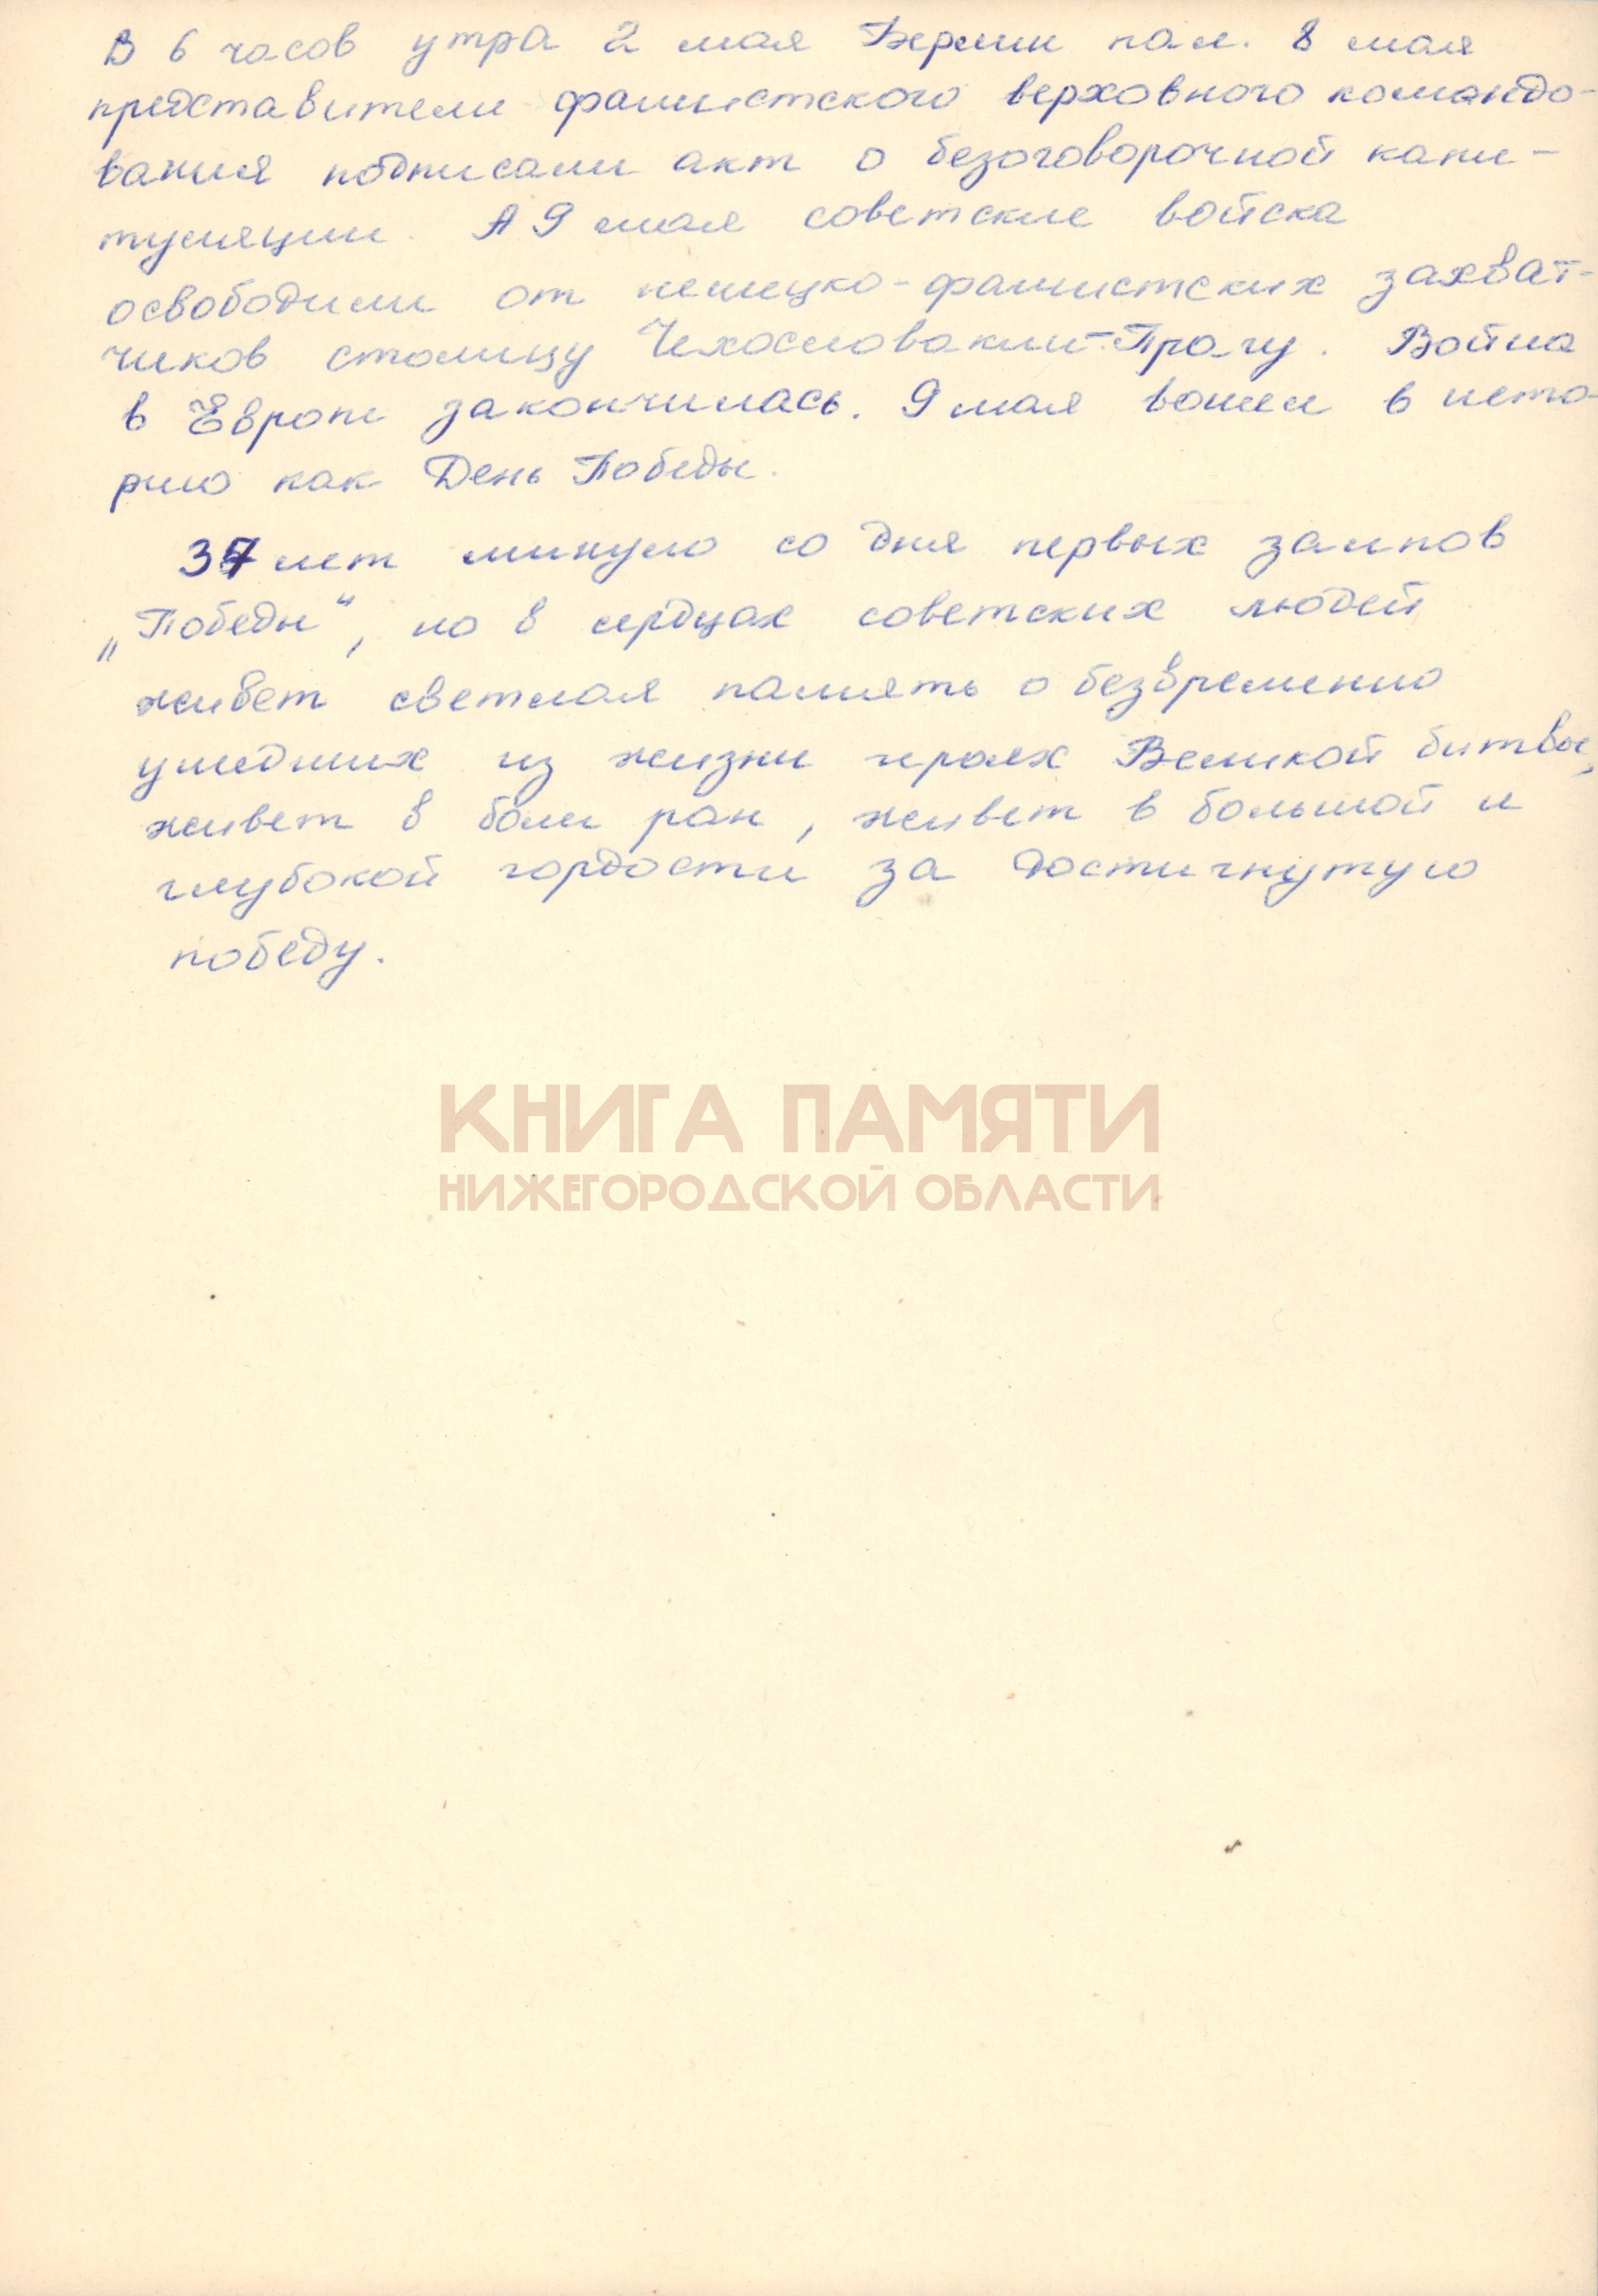 В 6 часов утра 2 мая Берлин пал. 8 мая
представители фашистского верховного командо-
вания подписали акт о безоговорочной капи-
туляции. А 9 мая советские войска
освободили от немецко-фашистских захват-
чиков столицу Чехословакии-Прагу. Война
в Европе закончилась. 9 мая вошел в исто-
рию как День Победы.
37 лет минуло со дня первых залпов
„Победы“, но в сердцах советских людей
живет светлая память о безвременно
ушедших из жизни героях Великой битвы,
живет в боли ран, живет в большой и
глубокой гордости за достигнутую
победу.
КНИГА ПАМЯТИ
НИЖЕГОРОДСКОЙ ОБЛАСТИ